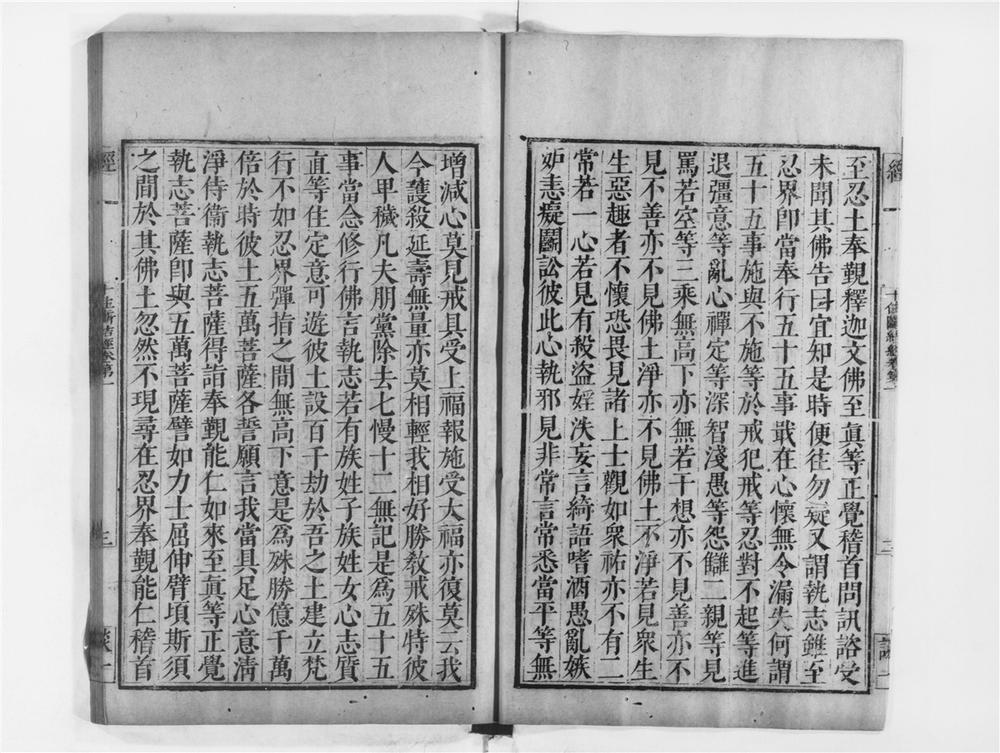 至忍土奉覲釋迦文佛至眞等正覺稽首問訊諮受
未聞其佛告曰宜知是時便往勿疑又謂執志雖至
忍界卽當奉行五十五事戢在心懷無令漏失何謂
五十五事施與不施等於戒犯戒等忍對不起等進
退彊意等亂心禪定等深智淺愚等怨讎二親等見
罵若空等二乘無高下亦無若干想亦不見善亦不
見不善亦不見佛土淨亦不見佛土不淨若見衆生
生惡趣者不懷恐畏見諸上士觀如衆祐亦不有二
常若一心若見有殺盜婬泆妄言綺語嗜酒愚亂嫉
妒恚癡鬭訟彼此心執邪見非常言常悉當平等無
增減心莫見戒具受上福報施受大福亦復莫云我
今護殺延壽無量亦莫相輕我相好勝敎戒殊特彼
人甲穢凡夫朋黨除去七慢十二無記是爲五十五
事當念修行佛言執志若有族姓子族姓女心志質
直等住定意可遊彼土設百千劫於吾之土建立梵
行不如忍界彈指之間無高下意是爲殊勝億千萬
倍於時彼土五萬菩薩各誓願言我當具足心意清
淨侍衞執志菩薩得詣奉覲能仁如來至眞等正覺
執志菩薩卽與五萬菩薩譬如力士屈伸臂頃斯須
之間於其佛土忽然不現尋在忍界奉覲能仁稽首
經 一
十住斷結經卷第一
三